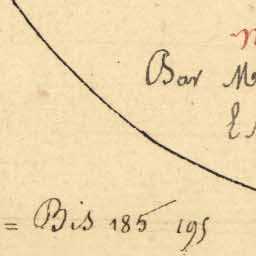 Bar
= Bis 185 195